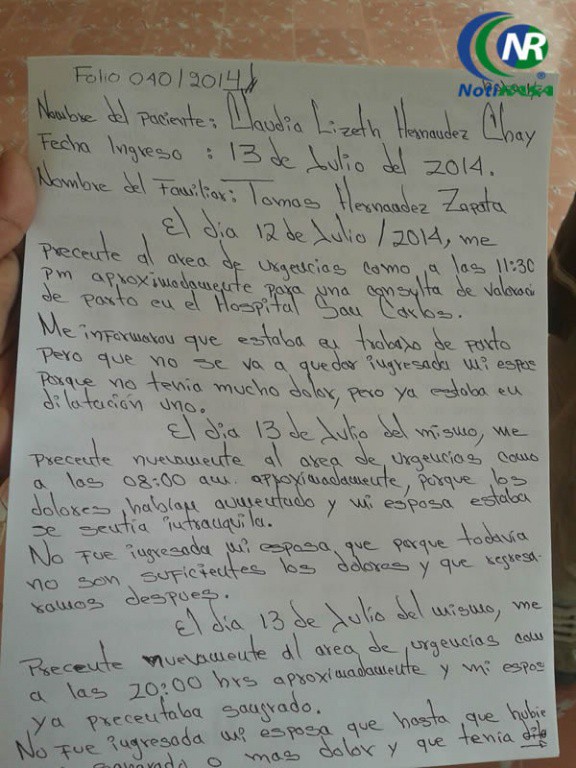 NR
Noti
®
Folio 040/2014
Nombre del paciente: Claudia Lizeth Hernandez Chay
Fecha Ingreso : 13 de Julio del 2014.
Nombre del Familiar: Tomas Hernandez Zapata
El dia 12 de Julio/2014, me
precente al area de urgencias como a las 11:30
pm aproximadamente para una consulta de valoraci
de parto en el Hospital San Carlos.
Me informaron que estaba en trabajo de parto
pero que no se va a quedar ingresada mi espos
porque no tenia mucho dolor, pero ya estaba en
dilatación uno.
El dia 13 de Julio del mismo, me
precente nuevamente al area de urgencias como
a las 08:00 am. aproximadamente, porque los
dolores habian aumentado y mi esposa estaba
se sentia intranquila.
No fue ingresada mi esposa que porque todavia
no son suficientes los dolores y que regresa-
ramos despues.
El dia 13 de Julio del mismo, me
Precente nuevamente al area de urgencias com
a las 20:00 hrs aproximadamente y mi espos
ya precentaba sangrado.
No fue ingresada mi esposa que hasta que hubie
sangrado o mas dolor y que tenia